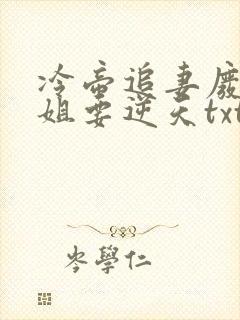 冷帝追妻废
姐要逆天txt
岑学仁